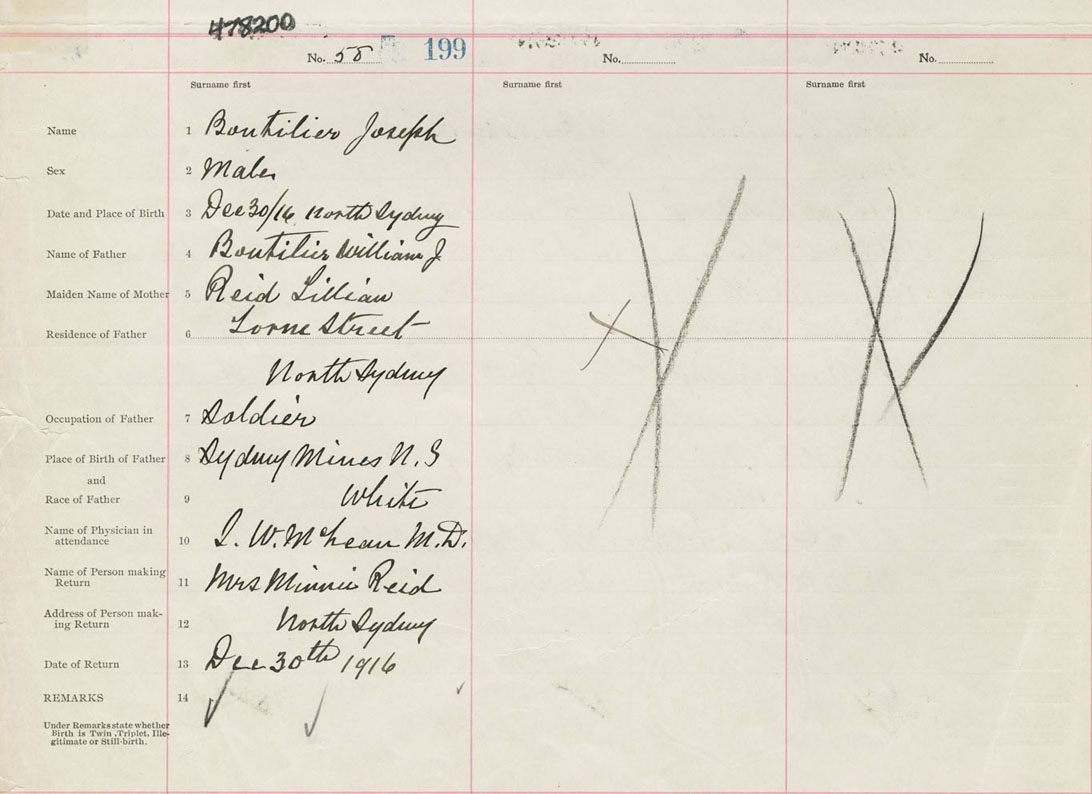 478200
No. 58 199 No. No.
Surname first Surname first Surname first
Name 1 Boutilier Joseph
Sex 2 Male
Date and Place of Birth 3 Dec 30/16 North Sydney
Name of Father 4 Boutilier William J
Maiden Name of Mother 5 Reid Lillian
Residence of Father 6 Lorne Street
North Sydney
Occupation of Father 7 Soldier
Place of Birth of Father 8 Sydney Mines N.S
and
Race of Father 9 White
Name of Physician in
attendance 10 W. McLean M.D.
Name of Person making
Return 11 Mrs Minnie Reid
Address of Person mak-
ing Return 12 North Sydney
Date of Return 13 Dec 30th 1916
REMARKS 14
Under Remarks state whether
Birth is Twin, Triplet, Ille-
gitimate or Still-birth.